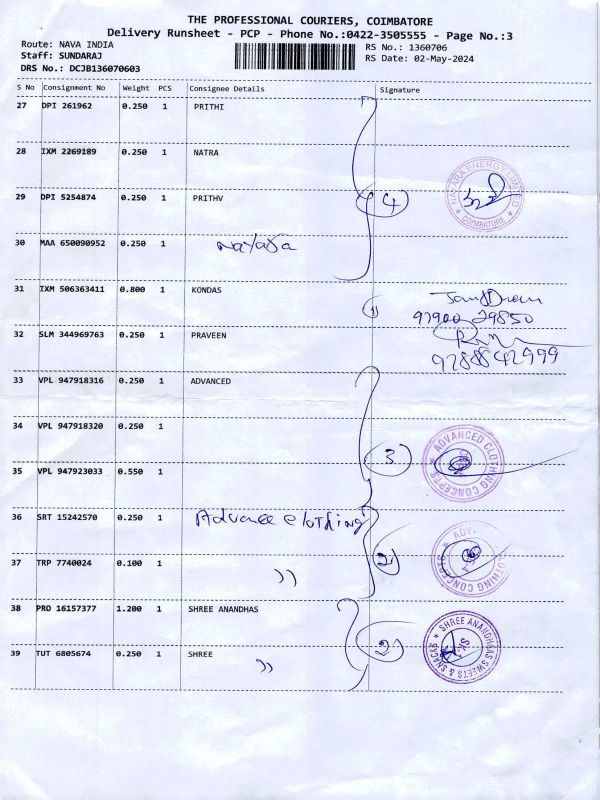 THE PROFESSIONAL COURIERS, COIMBATORE
Delivery Runsheet - PCP - Phone No.:0422-3505555 - Page No.:3
Route: NAVA INDIA
RS No.: 1360706
Staff: SUNDARAJ
RS Date: 02-May-2024
DRS No.: DCJB136070603
S No Consignment No Weight PCS Consignee Details Signature
27 DPI 261962 0.250 1 PRITHI
28 IXM 2269189 0.250 1 NATRA
NAYARA ENERGY LIMITED
COIMBATORE
29 DPI 5254874 0.250 1 PRITHV
4
30 MAA 650090952 0.250 1 Nayara
31 IXM 506363411 0.800 1 KONDAS
1
97900 29850
32 SLM 344969763 0.250 1 PRAVEEN
9788842999
33 VPL 947918316 0.250 1 ADVANCED
34 VPL 947918320 0.250 1
3
ADVANCED CLOTHING CONCEPTS
35 VPL 947923033 0.550 1
36 SRT 15242570 0.250 1 Advance clothing
2
CLOTHING CONCEPTS
37 TRP 7740024 0.100 1 ))
38 PRO 16157377 1.200 1 SHREE ANANDHAS
2
SHREE ANANDHAAS SWEETS & SNACKS
39 TUT 6805674 0.250 1 SHREE
))